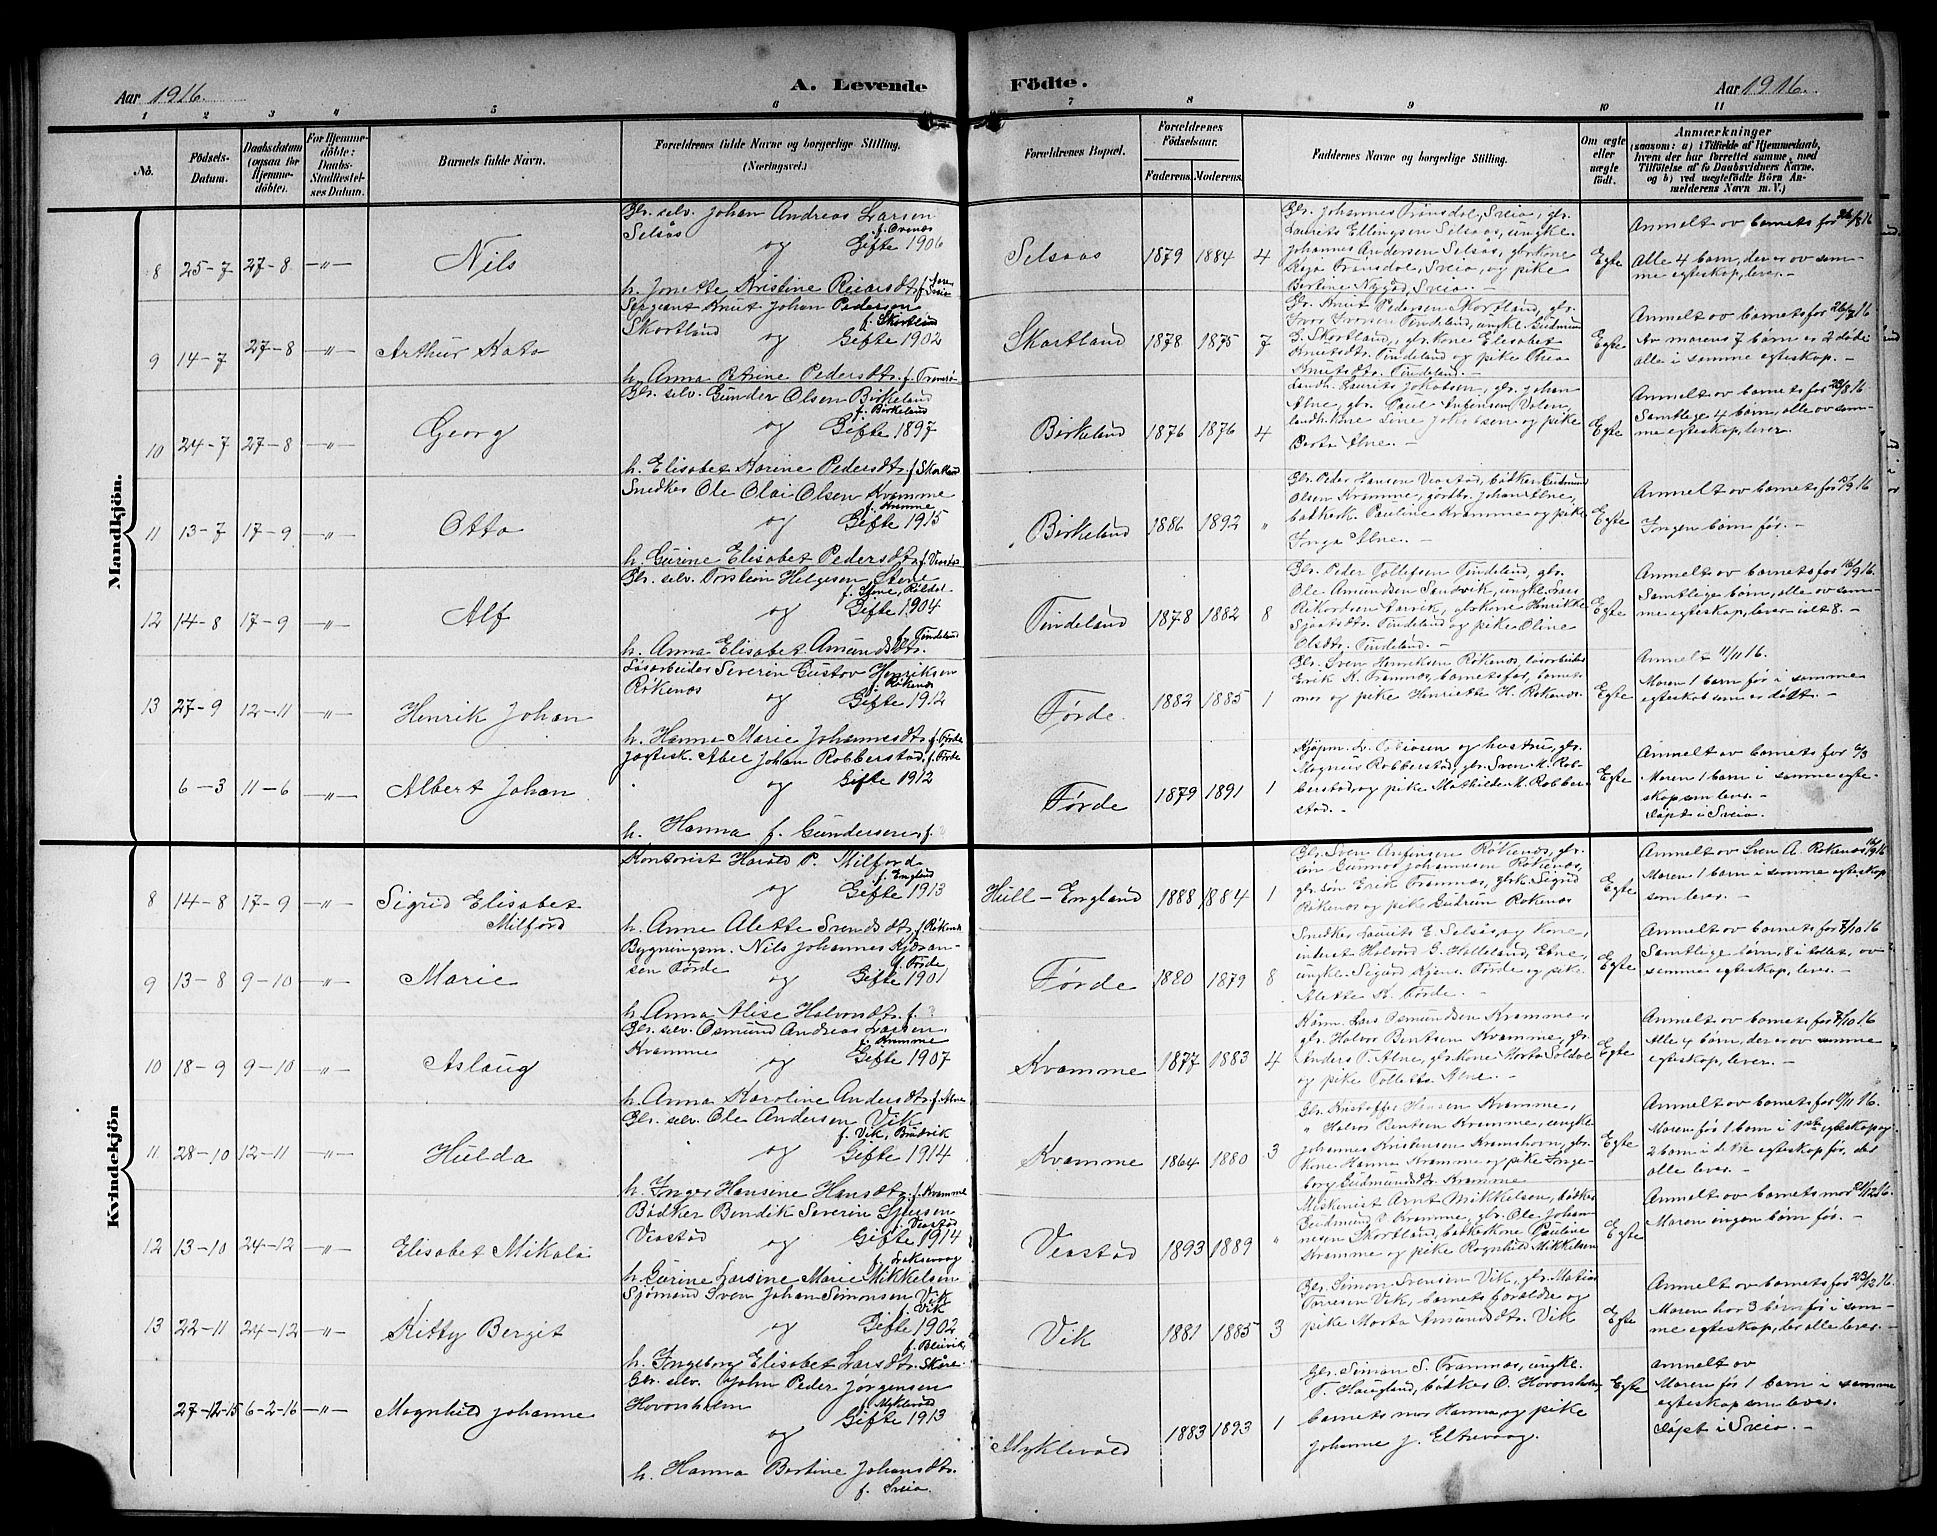 Aar 1916.
A. Levende Födte.
Aar 1916.
1 2 3 4 5 6 7 8 9 10 11
No.
Födsels-Datum.
Daabsdatum (ogsaa for Hjemme-döbte).
For Hjemme-döbte: Daabs-Stadfæstel-ses Datum.
Barnets fulde Navn.
Forældrenes fulde Navne og borgerlige Stilling. (Næringsvei.)
Forældrenes Bopæl.
Forældrenes Födselsaar.
Faderens. Moderens.
Faddernes Navne og borgerlige Stilling.
Om ægte eller uægte født.
Anmærkninger
(saasom: a) i Tilfælde af Hjemmedaab, hvem der har forrettet samme, med Tilföielse af to Daabsvidners Navne, og b) ved uægtefödte Börn Anmelderens Navn m. V.)
Mandkjön.
8 25-7 27-8 -"- Nils
Gbr. selv. Johan Andreas Larsen
Selsås f. Ovenas
og Gifte 1906
h. Jonette Kristine Reiarsdtr.
Selsaas 1879 1884 4
Gbr. Johannes Trønsdal, Sveio, gbr.
Laurits Ellingsen Selsaas, ungk.
Johannes Andersen Selsås, gbr.kone
Trønsdal, Sveio, og pike
Bertine Nygård, Sveio.
Egte
Anmelt av barnets far 26/8 16
Alle 4 barn, der er av sam-
me egteskap, lever.-
9 14-7 27-8 -"- Arthur Kato
Sergeant Knut Johan Pedersen
Skortland f. Skortland
og Gifte 1902
h. Anna Petrine Pedersdtr. f. Tromsø
Skortland 1878 1875 7
Gbr. Knut Pedersen Skortland, gbr.
Ivar Iversen Tindeland, ungk. Gudmund
Skortland, gbr. kone Elisabet
Knutsdtr. Tindeland og pike Thea
Knutsdtr. Tindeland.-
Egte
Anmelt av barnets far 26/7 16
Av marens 7 børn er 2 døde
alle i samme egteskap.-
10 24-7 27-8 -"- Georg
Gbr. selv. Gunder Olsen Birkeland
f. Birkeland
og Gifte 1897
h. Elisabet Karine Pedersdtr. f. Skortland
Birkeland 1876 1876 4
Landh. Laurits Jakobsen, gbr. Johan
Alne, gbr. Paul Anfinsen Valen,
landh. kone Line Jakobsen og pike
Berta Alne.-
Egte
Anmelt av barnets far 23/8 16
Samtlige 4 barn, alle av sam-
me egteskap, lever.
11 13-7 17-9 -"- Otto
Snedker Ole Olai Olsen Kvamme
f. Kvamme
og Gifte 1915
h. Gurine Elisabet Pedersdtr. f. Veastad
Birkeland 1886 1892 "
Gbr. Peder Hansen Veastad, bødker Gudmund
Olsen Kvamme, gårdbr. Johan Alne,
bødkerk. Pauline Kvamme og pike
Inga Alne.-
Egte
Anmelt av barnets far 17/9 16
Ingen børn før.-
12 14-8 17-9 -"- Alf
Gbr. selv. Torstein Helgesen Stene
f. Stene, Røldal
og Gifte 1904
f. Tindeland
h. Anna Elisabet Amundsdtr.
Tindeland 1878 1882 8
Gbr. Peder Tollefsen Tindeland, gbr.
Ole Amundsen Sandvik, ungk. Lars
Rikardsen Larvik, gbr.kone Henrikke
Sjoartsdtr. Tindeland og pike Oline
Olsdtr. Tindeland.-
Egte
Anmelt av barnets far 16/9 16.
Samtlige børn, alle av sam-
me egteskap, lever - ialt 8.-
13 27-9 12-11 -"- Henrik Johan
Løsarbeider Severin Gustav Henriksen
Røkenes f. Røkenes
og Gifte 1912
h. Hanna Marie Johannesdtr. f. Førde
Førde. 1882 1885 1
Gbr. Sven Henriksen Røkenes, løsarbeider
Erik K. Framnes, barnets far, barnets
mor og pike Henriette H. Røkenes.
Egte
Anmelt 11/11 16.
Maren 1 barn før i samme
egteskab som er dødt.-
6-3 11-6 -"- Albert Johan
Jagtesk. Abel Johan Robberstad, f. Førde
og Gifte 1912
h. Hanna f. Gundersen, f. ?
Førde 1879 1891 1
Kjøpm. L. Tobiasen og hustru, gbr.
Magnus Robberstad, gbr. Sven M. Rob-
berstad, og pike Mathilde M. Robber-
stad.-
Egte
Anmelt av barnets far 6/3
Maren 1 barn i samme egte-
skap som lever.
Døpt i Sveio.
Kvindekjön
8 14-8 17-9 -"- Sigrid Elisabet
Milford
Kontorist Harald P. Milford
f. England
og Gifte 1913
h. Anne Alette Svendsdtr. f. Røkenes
Hull - England 1888 1884 1
Gbr. Sven Anfinsen Røkenes, gbr.
søn Gunnar Johannesen Røkenes,
gbr. søn Erik Framnes, gbrk. Sigrid
Røkenes og pike Gudrun Røkenes
Egte
Anmelt av Sven A. Røkenes 16/9 16
Maren 1 barn i samme egteskap
som lever.
9 13-8 9-10 -"- Marie
Bygningsm. Nils Johannes Kjøran-
sen Førde f. Førde
og Gifte 1901
h. Anna Alise Halvorsdtr. f. ?
Førde 1880 1879 8
Snedker Laurits E. Selsås, og kone,
inderst Halvard G. Halleland, Etne,
ungk. Sigurd Kjøns. Førde og pike
Alette K. Førde.-
Egte
Anmelt av barnets far 7/10 16
Samtlige børn, 8 i tallet, av
samme egteskap, lever.-
10 18-9 9-10 -"- Aslaug
Gbr. selv. Osmund Andreas Larsen
Kvamme f. Kvamme
og Gifte 1907
h. Anna Karoline Andersdtr. f. Alne
Kvamme 1877 1883 4
Kårm. Lars Osmundsen Kvamme,
gbr. Halvor Bentsen Kvamme, gbr.
Anders P. Alne, gbr.kone Marta Soldal
og pike Tollette Alne.-
Egte
Anmelt av barnets far 7/10 16
Alle 4 børn, der er av samme
egteskap, lever.-
11 28-10 12-11 -"- Hulda
Gbr. selv. Ole Andersen Vik
f. Vik, Brudvik
og Gifte 1914
h. Inger Hansine Hansdtr. f. Kvamme
Kvamme 1864 1880 3
Gbr. Kristoffer Hansen Kvamme,
" Halvor Bentsen Kvamme, ungk.
Johannes Kristensen Kvamshovn, gbr.
kone Hanna Kvamme og pike Inge-
borg Gudmundsdtr. Kvamme
Egte
Anmelt av barnets far 9/11 16.
Maren før 1 barn i 1ste egteskap og
2 barn i dette egteskap før, der
alle lever.-
12 13-10 24-12 -"- Elisabet Mikala
Bødker Bendik Severin Sjursen
Veastad f. Veastad
og Gifte 1914
f. Laksevaag
h. Gurine Larsine Marie Mikkelsen
Veastad 1893 1889 "
Maskenist Arnt Mikkelsen, bødker
Gudmund O. Kvamme, gbr. Ole Johan-
nesen Skortland, bødkerkone Pauline
Kvamme og pike Ragnhild Mikkelsen
Egte
Anmelt av barnets mor 21/12 16.
Maren ingen børn før.
13 22-11 24-12 -"- Kitty Bergit
Sjømand Sven Johan Simonsen Vik
f. Vik
og Gifte 1902
h. Ingeborg Elisabet Larsdtr. Skåre
Vik 1881 1885 3
Gbr. Simon Svensen Vik, gbr. Matias
Taresen Vik, barnets foraldre og
pike Marta Amundsdtr. Vik
Egte
Anmelt av barnets far 23/12 16.
Maren har 3 børn før i sam-
me egteskap, der alle lever.
27-12-15 6-2-16 -"- Magnhild Johanne
Gbr. selv. John Peder Jørgensen
Hovorsholm f. Myklevold
og Gifte 1913
h. Hanna Bertine Johansdtr.
f. Sveio.
Myklevold 1883 1893 1
Gbr. Simon S. Framnes, ungk.
T. Haugland, bødker O. Hovorsholm,
barnets mor Hanna, og pike
Johanne J. Eltrevaag.
Egte
Anmelt av
Maren før 1 barn i samme
egteskap som lever.
Døpt i Sveio.-